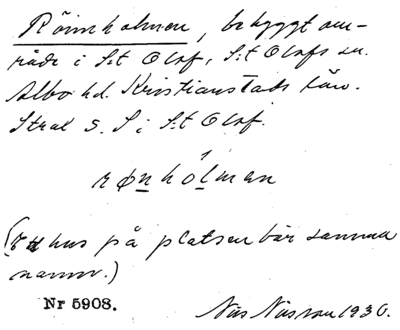 Rönnholmen, bebyggt om-
råde i S:t Olof, S:t Olofs sn.
Albo hd. Kristianstads län.
Strax S. i S:t Olof.
rønhólmen
(Ett hus på platsen bär samma
namn.)
Nr 5908.
Nils Nilsson 1930.